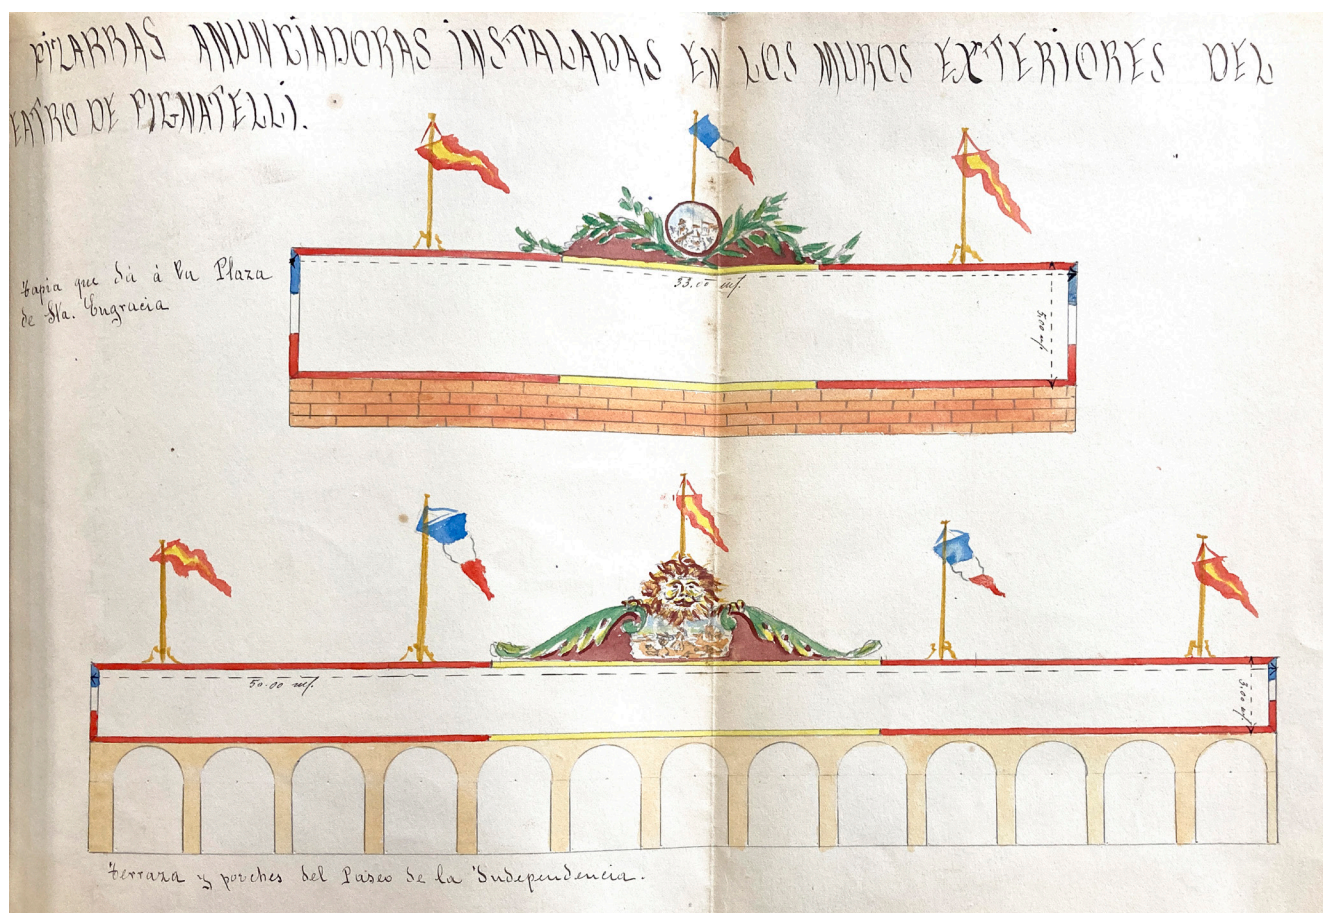 PIZARRAS ANUNCIADORAS INSTALADAS EN LOS MUROS EXTERIORES DEL
EATRO DE PIGNATELLI.
tapia que dá á la Plaza
de Sta. Engracia
33.00 m/.
5.00 m/.
50.00 m/.
3.00 m/.
terraza y porches del Paseo de la Independencia.